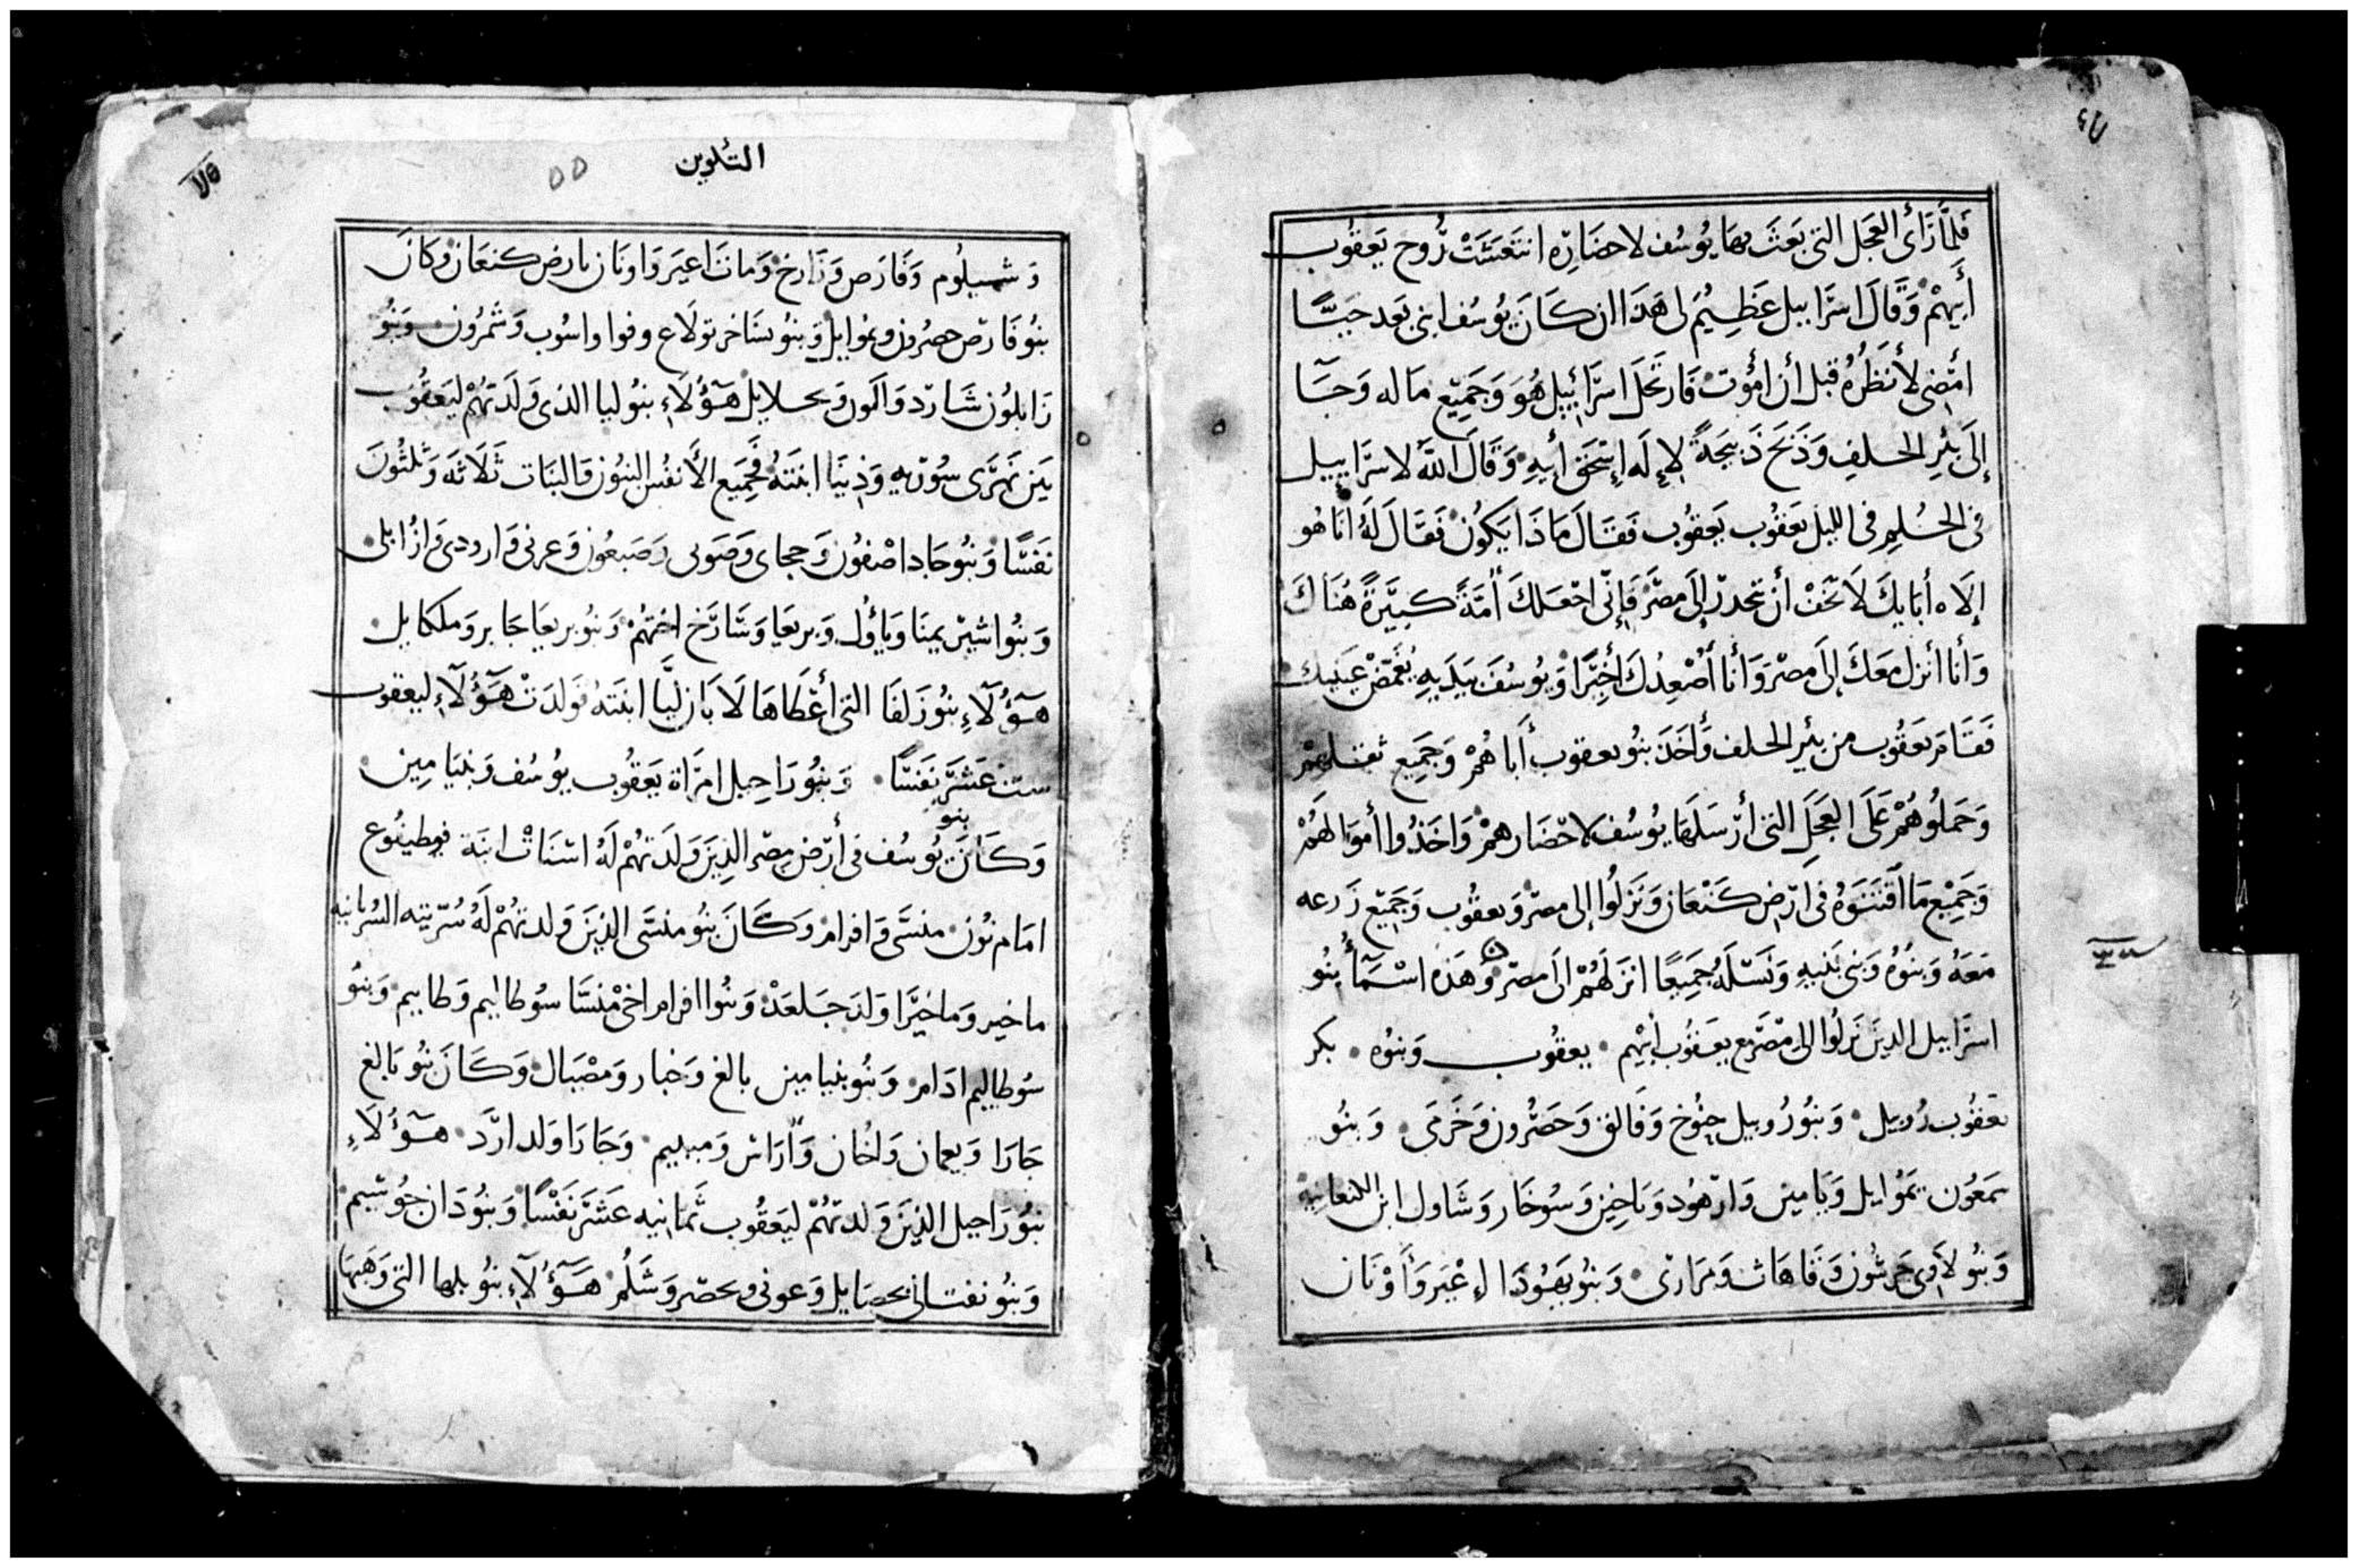 فلمَّا رَأى العَجَل التي بَعَثَ بهَا يُوسُف لاحضَارِه انتَعَشَتْ رُوح يَعقوُب
أبِيهمْ وَقَالَ اسرَاييل عَظِيُم لى هَذَا ان كَانَ يُوسُف ابنى بَعد حَيًّا
امْضى لأنظُرُهُ قبل أن امُوت فَارتحَلَ اسرَائِيل هُوَ وَجَمِيع مَاله وَجَآ
إلَى بئرِ الحلفِ وَذَبَحَ ذَبِيحَةً لإلَهِ إسْحَق أبيهِ وَقَالَ اللَّه لاسرَاييل
فى الحُلمِ فى الليل يَعقوُب يَعقوُب فَقَالَ مَاذَا يَكُون فَقَالَ لَهُ أنَا هُو
إلَاه أبَايكَ لَا تَخَفْ أن تنحدرْ إلَى مصْرَ فَإنّى اجْعَلكَ أُمَّةً كبِيَرةً هُنَاكَ
وَأنَا أنزل مَعَكَ إلىَ مصْر وَأنَا أُصْعِدُكَ أخِيرًا وَيوُسُف بيَدَيهِ يُغَمّضْ عَينيكَ
فَقَامَ يَعقُوب من بئرِ الحلف وَأخَذَ بنُو يعقوب أبَاهُمْ وَجَمِيع ثقلهمْ
وَحَملُوهُمْ عَلَى العَجَلِ التى أرْسَلَهَا يُوسُف لاحْضَارهمْ وَاخَذُوا أموَالهُمْ
وَجَمِيْع مَا اقْتَنَوهُ فى ارْضِ كَنْعَان وَنَزلُوا إلى مصرْ وَيعقُوب وَجَمِيْع زَرعه
مَعَهُ وَبنُوهُ وَبنى بَنيهِ وَنَسْلَهُ جَمِيعًا انزَلَهُمْ الَى مصرْ وَهَذه اسْمَآءُ بنُو
اسرَاييل الذينَ نَزلُوا الى مصْرَ مع يعَقوُب أبيهم يعقوُب وَبنوُه بكر
يَعقوُب رُوبيل وَبنوُ رُوبيل حنوُخ وَفَالق وَحَصْرُون وَخَرمَى وَبنُو
سمَعُون يمَوُايل وَيَامين وَارْهوُد وَيَاخين وَسُوخَار وَشَاول ابن الكنعانيه
وَبنُو لَاوى جَرشُون وَقَاهَات وَمَرَارى وَبنُو يَهُودَا عْيرَ وَأوْنَان
التكوين
وَشيلُوم وَفَارَص وَزَارخ وَمَاتَ اعيرَ وَاونَان بارض كنعَان وَكَانَ
بنُو فَارص حصرُون ويمُوايل وَبنوُ يسَاخر تولَاع وفوا واسُوب وَشَمرُون وَبنُو
زَابلوُن سَارد وَالَون وَيحلايل هَؤُلَاءِ بنُو ليا الذى وَلَدَتهُمْ ليَعَقُوب
بَين نَهرَى سُوريه وَدِينَا ابنَتهُ فجَمِيَع الأنفُس البنوُن وَالبَنَات ثَلَاثَه وَثَلثُونَ
نَفسًا وَبنُو جَاد اصْفوُن وَحجاى وَصَونى وَصَبعُون وَعرنى وَارودى وَازُايلى
وَبنُوا اشيرْ يمنَا وَيَاؤُل وَبريعَا وَسَارَخ اختهُمْ وَبنُو بريعَا جَابر وَملكايل
هَؤُلَآءِ بنُو زَلفَا التى أعْطَاهَا لَابَان ليَّا ابنَتهُ فَولَدَتْ هَؤُلَآءِ ليعقوُب
ست عَشَرَ نَفسًا وَبنُو رَاحيل امرَاة يَعقُوب يوُسُف وَبنيَامِين
بنو
وَكَانَ يوُسُف فى أرْضِ مصْر الذِينَ وَلَدَتهُمْ لَهُ اسْنَاتْ ابنَة فوطيفُوع
امَام نُون منسَّى وَافرام وَكَانَ بنُو منسَّى الذِينَ وَلدتهُمْ لَهُ سُرّيته السُريانيه
ماخير وَماخيرًا وَلدَ جَلعَدْ وَبنُوا افرام اخى منسَّا سُوطاليم وَطايم وَبنُو
سُوطاليم ادَام وَبنُو بنيامين بالغ وَخبار وَمصْبَال وَكَانَ بنُو بَالغ
جَارَا وَيعمان وَاخَان وَارَاس وَمبييم وَجَارَا وَلد ارَد هَؤُلَاءِ
بنوُ رَاحيل الذِينَ وَلدتهُمْ ليَعقُوب ثَمَانيه عَشَرَ نَفْسًا وَبنُو دَان جُوشيم
وَبنُو نفتالى يحصَايل وَعونى وَيحصّر وَشَلُم هَؤُلَآءِ بنُو بلها التى وَهَبهَا